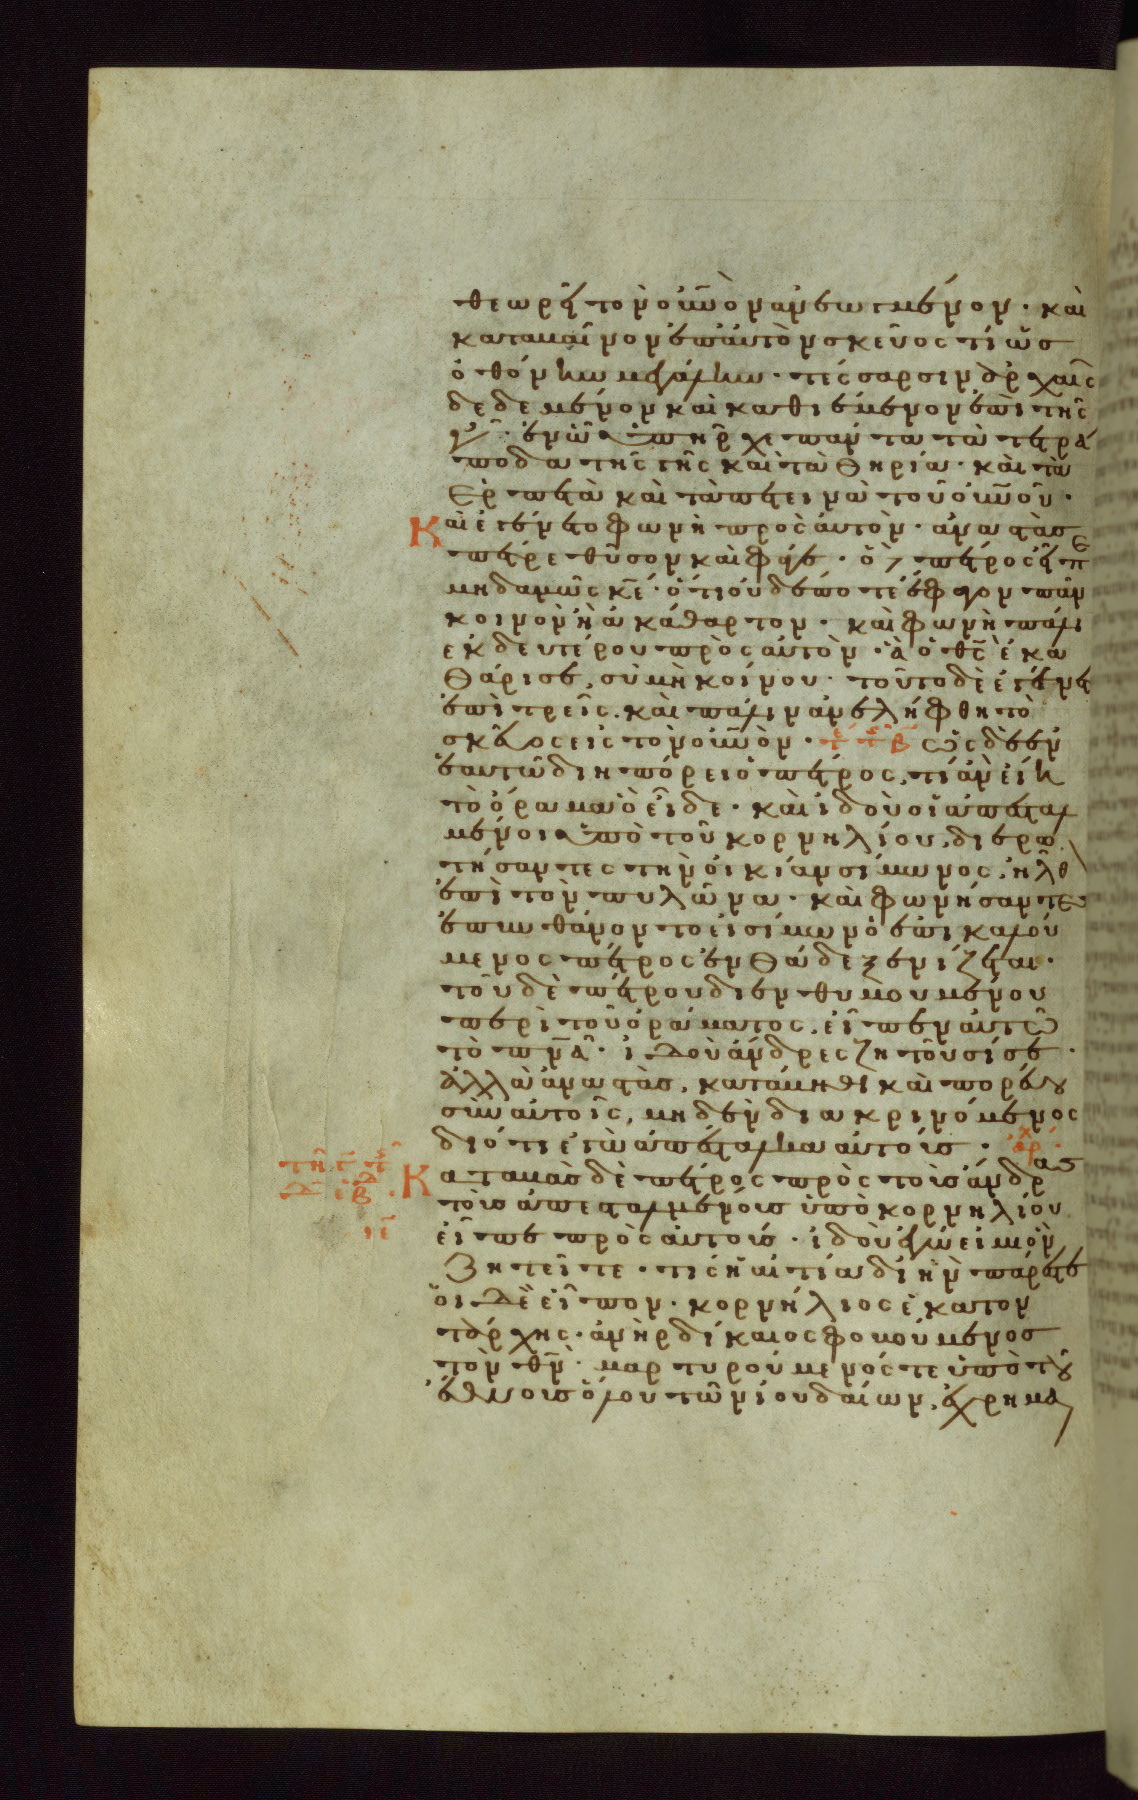 θεωρεῖ τὸν οὐνὸν ἀνεωγμένον · καὶ
καταβαῖνον ἐπ αὐτὸν σκεῦος τί ὡσ
ὀθόνην μεγάλην · τέσσαρσιν ἀρχαῖς
δεδεμένον καὶ καθιέμενον ἐπὶ τῆς
γῆς · ἐν ᾧ ὑπῆρχε πάντα τὰ τετρά
ποδα τῆς γῆς καὶ τὰ θηρία · καὶ τὰ
ἑρπετὰ καὶ τὰ πετεινὰ τοῦ οὐνοῦ ·
Καὶ ἐγένετο φωνὴ προς αὐτόν · ἀναστὰσ
πέτρε θῦσον καὶ φάγε · ὁ δὲ πέτρος εἶπε
μηδαμῶς κε · ὅτι οὐδέποτε ἔφαγον πᾶν
κοινὸν ἢ ἀκάθαρτον · καὶ φωνὴ πάλι
εκ δευτέρου πρὸς αὐτόν · ἃ ὁ θς ἐκα
θάρισε, σὺ μὴ κοίνου · τοῦτο δὲ ἐγένετο
ἐπὶ τρεῖς · καὶ πάλιν ἀνελήφθη τὸ
σκεῦος εις τὸν οὐνόν · ὡς δὲ ἐν
ἑαυτῶ διηπόρει ὁ πέτρος, τί ἂν εἴη
τὸ ὅραμα ὃ εἶδε · καὶ ἰδοὺ οἱ ἀπεσταλ
μένοι ὑπὸ τοῦ κορνηλίου, διερω
τήσαντες τὴν οἰκίαν σίμωνος, ἦλθον
ἐπὶ τὸν πυλῶνα · καὶ φωνήσαντες
ἐπυνθάνοντο εἰ σίμων ὁ ἐπικαλού
μενος πέτρος ἐνθάδε ξενίζεται ·
τοῦ δὲ πέτρου διενθυμουμένου
περὶ τοῦ ὁράματος, εἶπεν αὐτῶ
τὸ πνα · ἰδοὺ ἄνδρες ζητοῦσί σε ·
ἀλλὰ ἀναστὰσ, κατάβηθι καὶ πορεύου
σὺν αὐτοῖς, μηδὲν διακρινόμενος
διότι ἐγὼ ἀπέσταλκα αὐτοὺσ · ἀρχ
Καταβὰσ δὲ πέτρος πρὸς τοὺσ ἄνδρασ
τοὺσ ἀπεσταλμένουσ ὑπὸ κορνηλίου
εἶπε πρὸς αὐτούσ · ἰδοὺ ἐγώ εἰμι ὃν
ζητεῖτε · τίς ἡ αἰτία δι ἣν πάρεστε
οἱ δὲ εἶπον · κορνήλιος ἑκατον
τάρχης · ἀνὴρ δίκαιος φοβούμενοσ
τὸν θν · μαρτυρούμενός τε ὑπὸ τοῦ
ἔθνουσ ὅλου τῶν ἰουδαίων, ἐχρημα